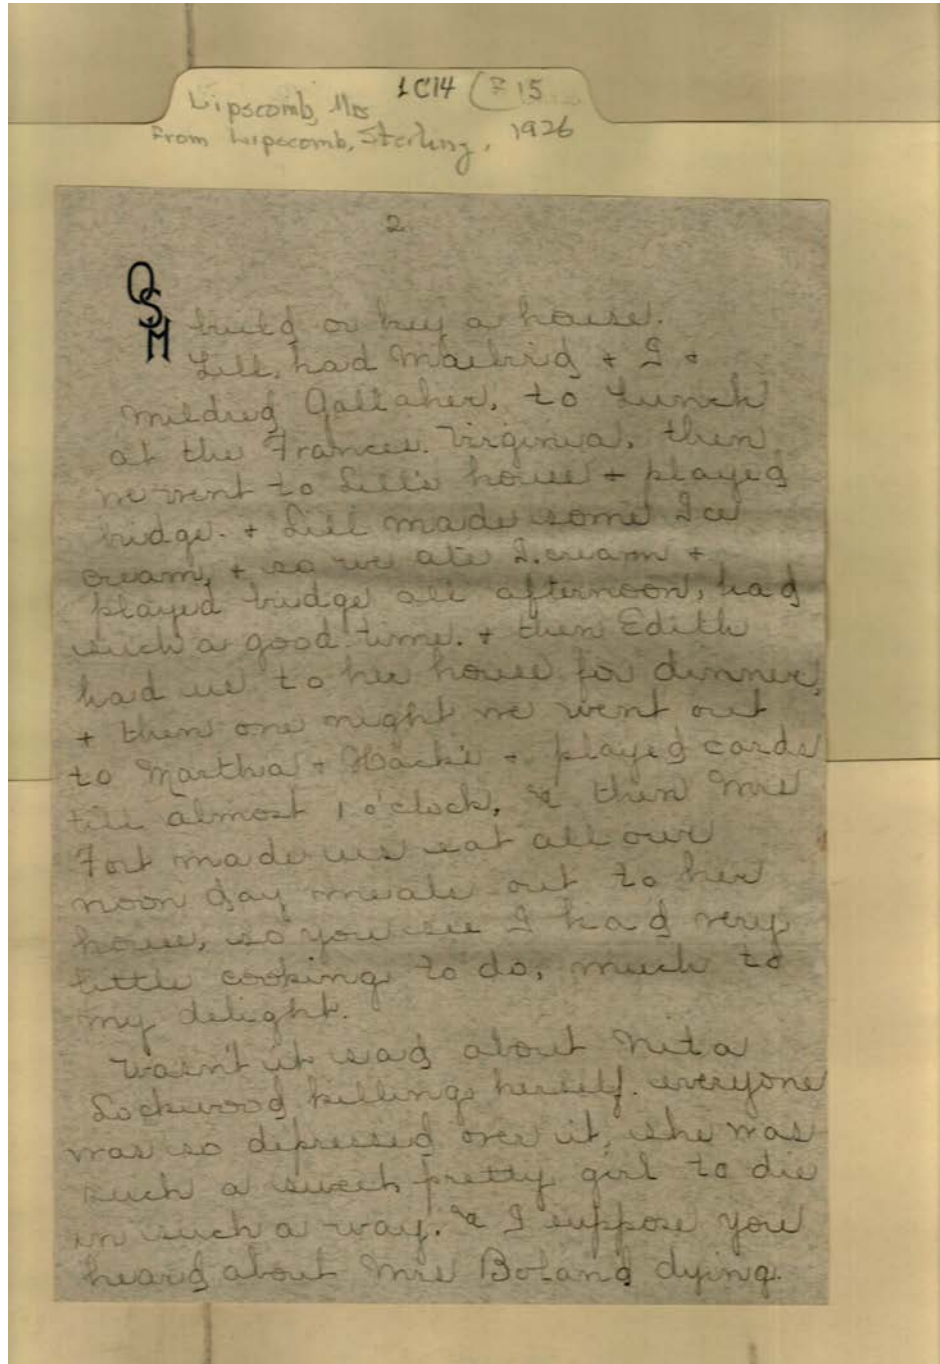 1C14 F 15
Lipscomb, Mrs
From Lipscomb, Sterling, 1926
2
OSH
build or buy a house.
Lill, had Maebrid + I +
Mildred Gallaher, to lunch
at the Frances. Virginia, then
we went to Lill's house + played
bridge. + Lill made some Ice
cream, + so we ate I. cream +
played bridge all afternoon, had
such a good time. + then Edith
had us to her house for dinner,
+ then one night we went out
to Martha + Mack's + played cards
till almost 1 o'clock, & then Mrs
Fort made us eat all our
noon day meals out to her
house, so you see I had very
little cooking to do, much to
my delight.
Wasn't it sad about Nita
Lockwood killing herself. everyone
was so depressed over it, she was
such a sweet pretty girl to die
in such a way. & I suppose you
heard about Mrs Boland dying.